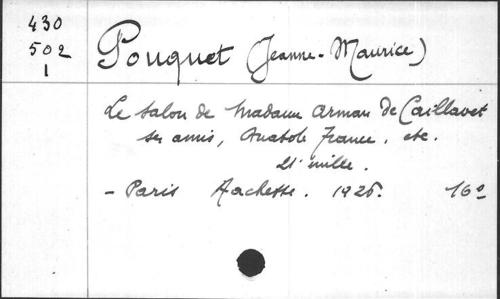 430
502
1
Pouquet (Jeanne-Maurice)
Le salon de Madame Arman de Caillavet
ses amis, Anatole France. etc.
21e mille.
- Paris Hachette. 1926. 16°